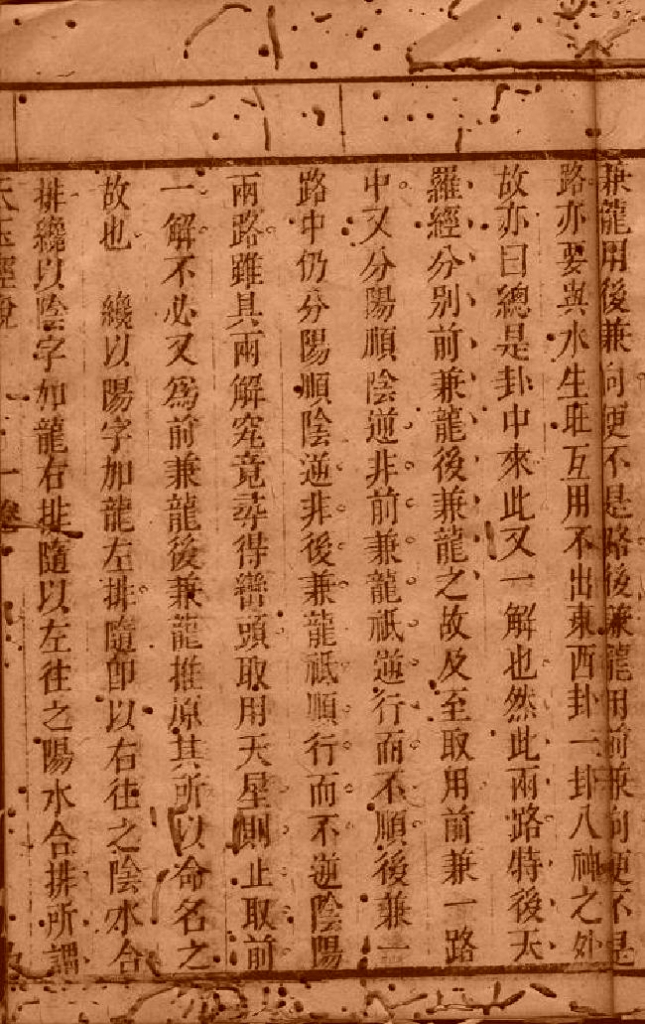 兼龍用後兼向更不是路後兼龍用前兼向更不是
路亦要與水生旺互用不出東西卦一卦八神之外
故亦曰總是卦中來此又一解也然此兩路特後天
羅經分別前兼龍後兼龍之故及至取用前兼一路
中又分陽順陰逆非前兼龍祇逆行而不順後兼一
路中仍分陽順陰逆非後兼龍祇順行而不逆陰陽
兩路雖具兩解究竟尋得巒頭取用天星則止取前
一解不必又爲前兼龍後兼龍推原其所以命名之
故也 纔以陽字加龍左排隨卽以右往之陰水合
排纔以陰字加龍右排隨以左往之陽水合排所謂
天玉經說 卷